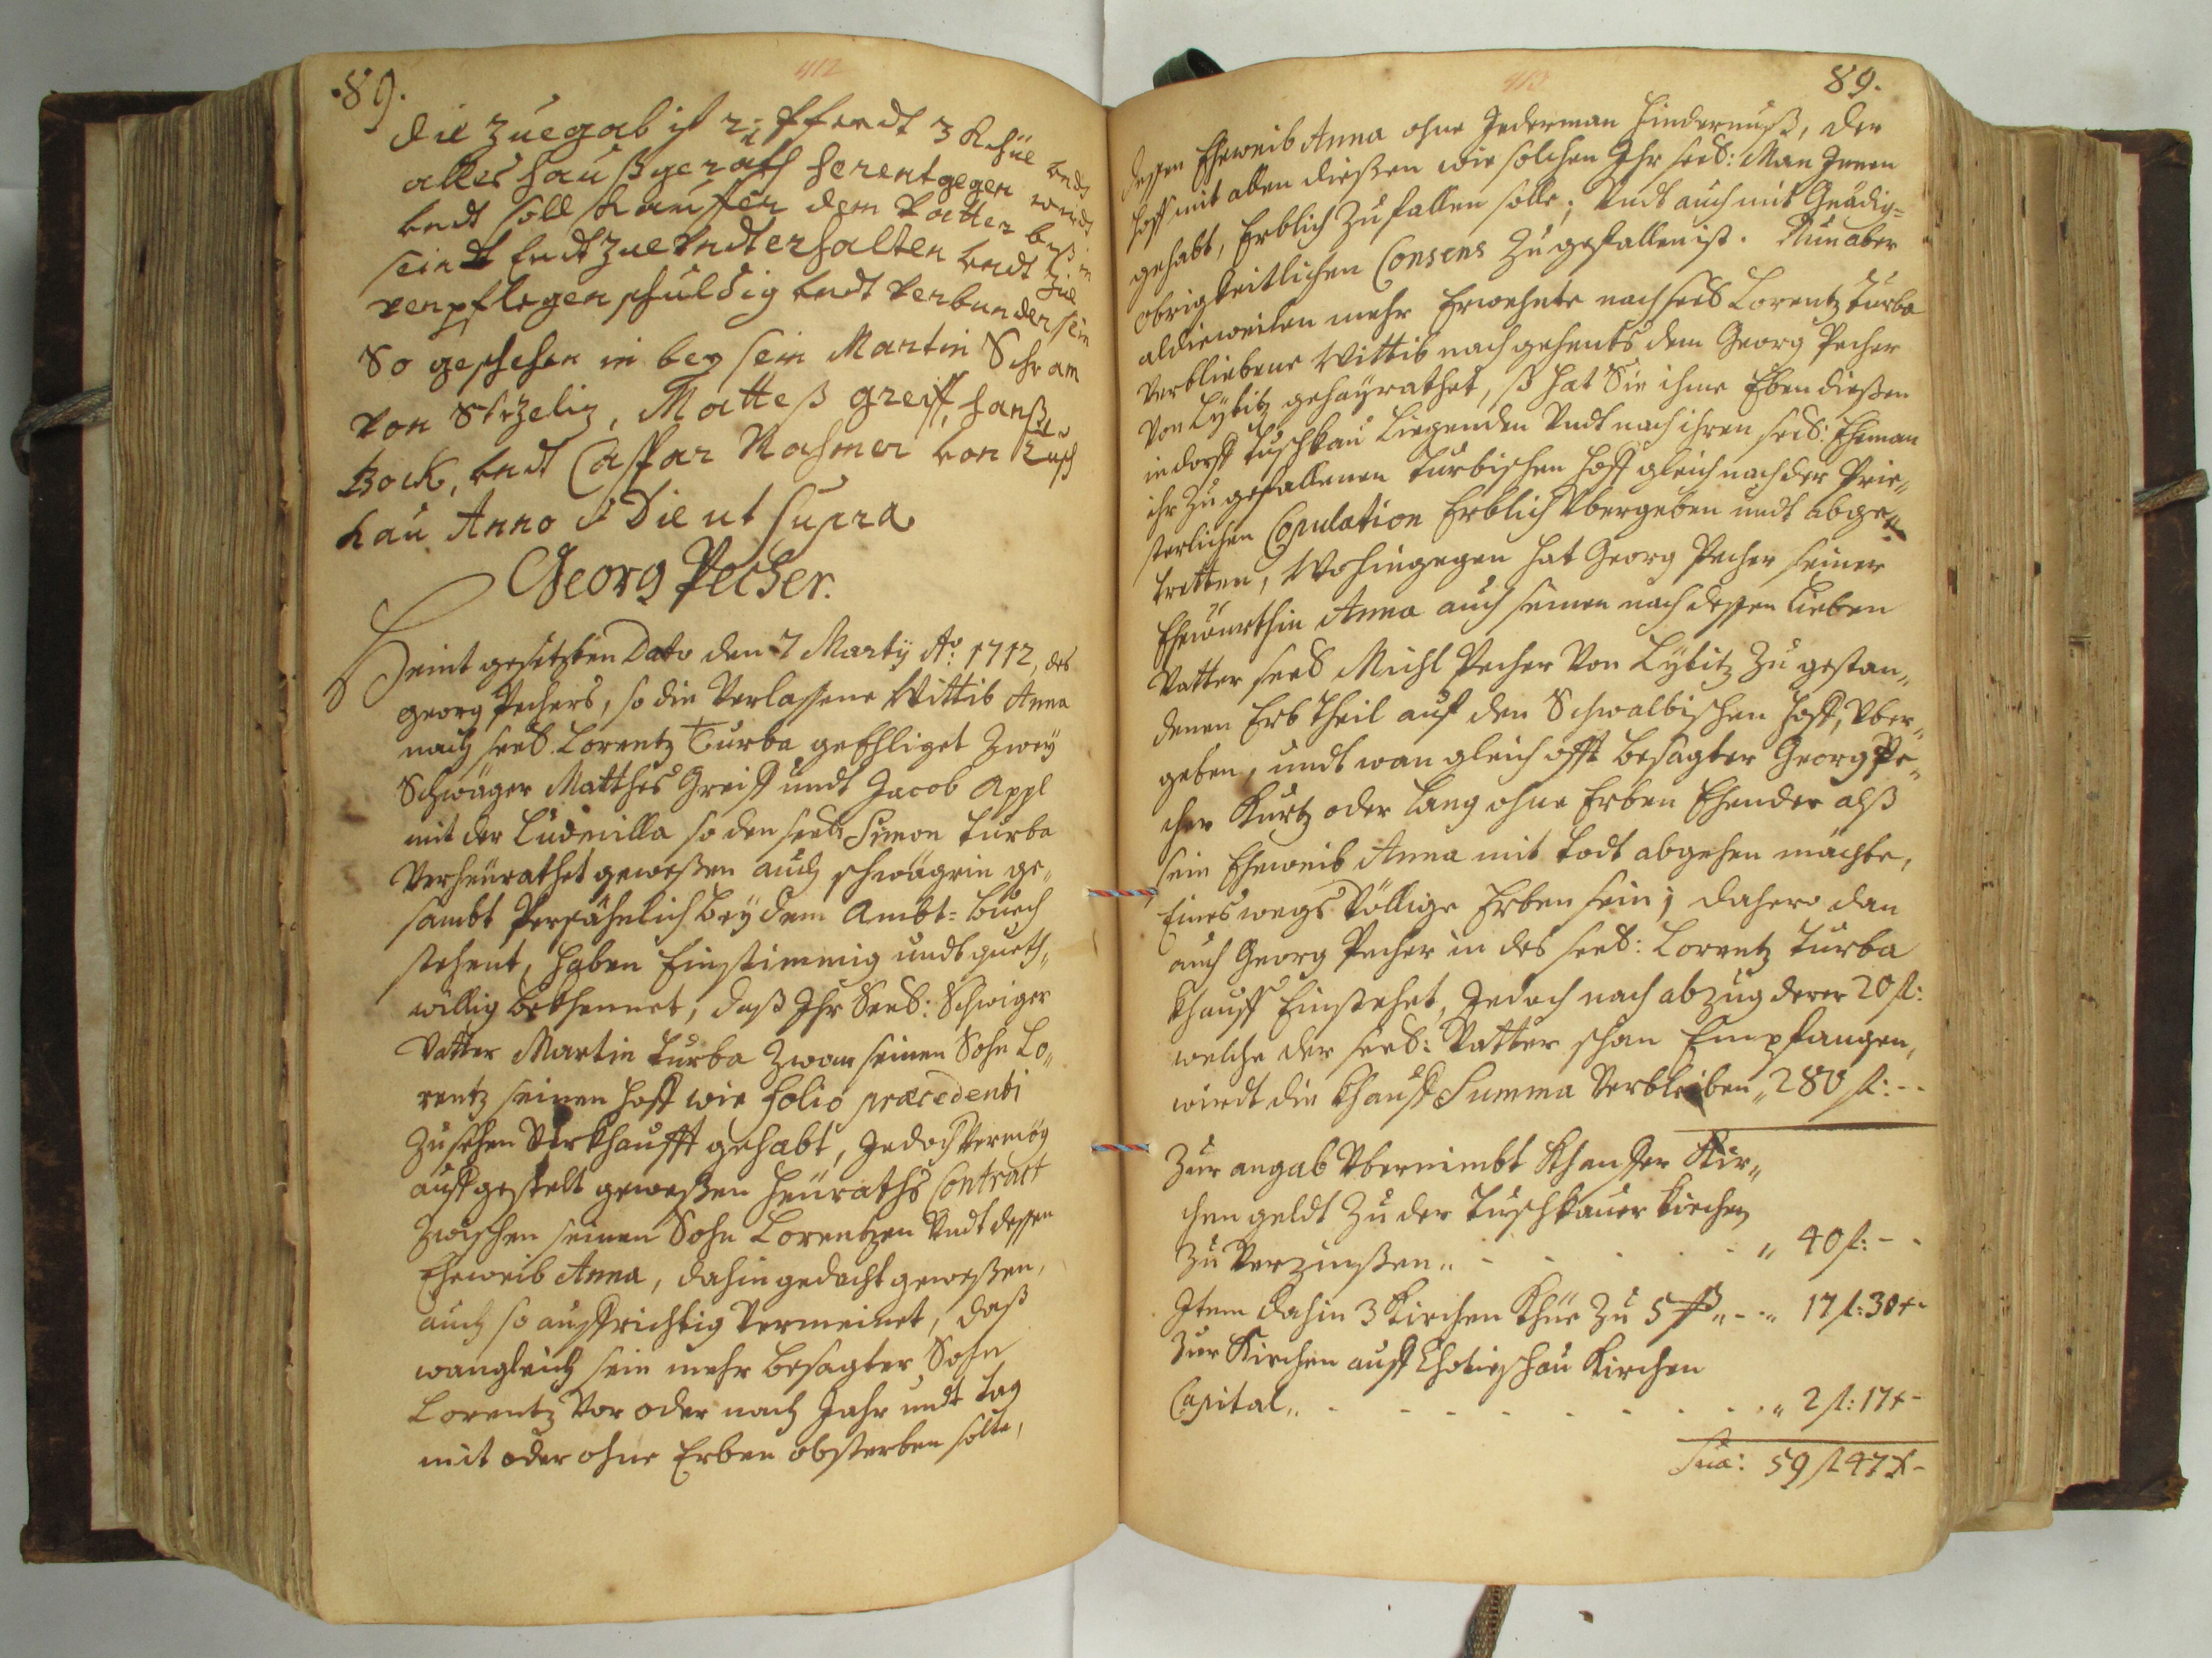 89.
412
die zuegab ist 2 Pferdt 3 Khüe undt
alles haußgeräth herentgegen wirdt
undt soll kauffer dem Vatter biß in
sein Endt zue undterhalten undt zue
verpflegen schuldig undt verbunden sein
So geschehen in bey sein Martin Schram
von Skizelig, Matteß greiff, hanß
Bock, undt Caspar Rahmer von Tusch
kau Anno & Die ut supra
Georg Pecher.
Heint gesetzten Dato den 7 Marty Ao: 1712, des
Georg Pechers, so die Verlassene Wittib Anna
nach seel. Lorentz Turba geEhliget Zwey
Schwäger Matthes Greiff undt Jacob Appl
mit der Ludmilla so den seel: Simon Turba
Verheurathet geweßen auch schwägrin ge„
sambt Persöhnlich bey dem Ambt=buech
stehent, haben Einstimmig undt gueth„
willig bekhennet, daß Ihr Seel: Schwiger
Vatter Martin Turba Zwar seinen Sohn Lo„
rentz seinen hoff wie folio præcedenti
Zu sehen Verkhaufft gehabt, Jedoch Vermög
auffgestelt geweßen heuraths Contract
Zwischen seinen Sohn Lorentzen Undt dessen
Eheweib Anna, dahin gedacht geweßen,
auch so auffrichtig Vermeinet, daß
wangleich sein mehr besagter Sohn
Lorentz Vor oder nach Jahr undt tag
mit oder ohne Erben absterben solte,
413
89.
dessen Eheweib Anna ohne Jederman hindernuß, der
hoff mit allen dießen wie solchen Ihr seel: Man Innen
gehabt, Erblich Zufallen solle; Undt auch mit Gnädig=
obrigkeitlichen Consens Zugefallen ist. Nun aber
aldieweilen mehr Erwehnte nach seel Lorentz Turba
Verbliebene Wittib nachgehents dem Georg Pecher
Von Lybitz geheyrathet, so hat Sie ihme Eben dießen
in dorff Tuschkau Liegenden Undt nach ihren seel: Eheman
ihr Zugefallenen Turbischen hoff gleich nach der Prie„
sterlichen Copulation Erblich Übergeben undt abge„
tretten, Wohingegen hat Georg Pecher seiner
Ehewürthin Anna auch seinen nach dessen Lieben
Vatter seel Michl Pecher Von Lybitz Zu gestan„
denen Erbtheil auf den Schwalbischen hoff, Über„
geben, undt wan gleich offt besagter Georg Pe„
cher Kurtz oder Lang ohne Erben Ehender alß
sein Eheweib Anna mit todt abgehen möchte,
Eineswegs Völlige Erben sein; dahero dan
auch Georg Pecher in des seel: Lorentz Turba
Khauff Einstehet, Jedoch nach abzug derer 20 fl:
welche der seel: Vatter schon Empfangen,
wirdt die Khauff Summa Verbleiben „ 280 fl: - -
Zur angab Übernimbt Khauffer Kir„
chen geldt Zu der Tuschkauer kirchen
Zu Verzinßen „ - - - - „ 40 fl: - -
Item dahin 3 Kirchen Khüe Zu 5 ß „ - „ 17 fl: 30 x -
Zur Kirchen auff Chotieschau Kirchen
Capital „ - - - - - - - „ 2 fl: 17 x -
Sua: 59 fl 47 x -